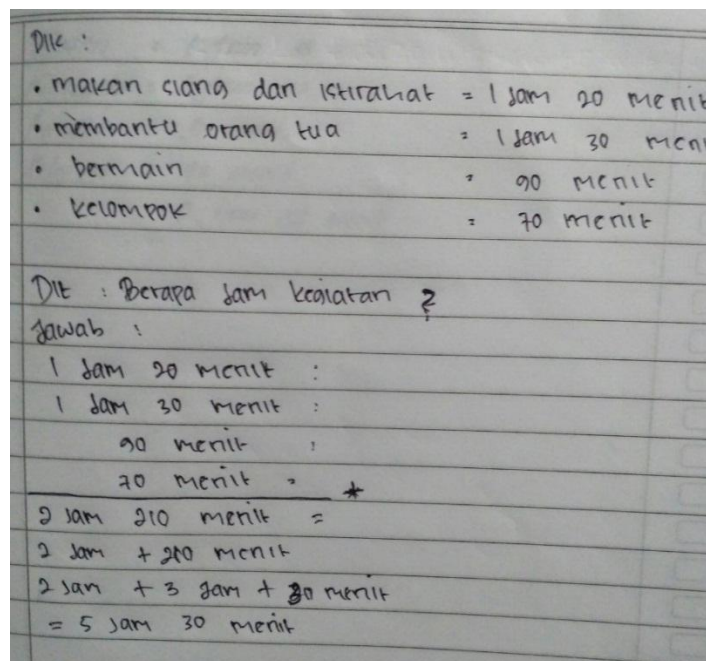 Dik :
• makan siang dan istirahat = 1 Jam 20 menit
• membantu orang tua = 1 Jam 30 meni
• bermain = 90 menit
• kelompok = 70 menit
Dit : Berapa Jam kegiatan ?
Jawab :
1 Jam 20 menit :
1 Jam 30 menit :
90 menit :
70 menit = +
2 Jam 210 menit =
2 Jam + 210 menit
2 Jam + 3 Jam + 30 menit
= 5 Jam 30 menit